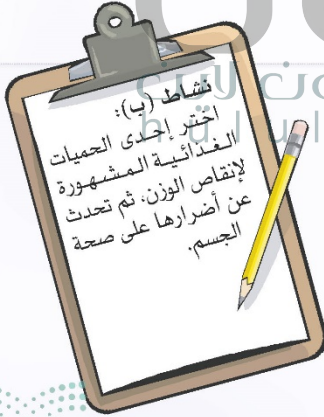 نشاط (ب):
اختر إحدى الحميات
الغذائية المشهورة
لإنقاص الوزن، ثم تحدث
عن أضرارها على صحة
الجسم.